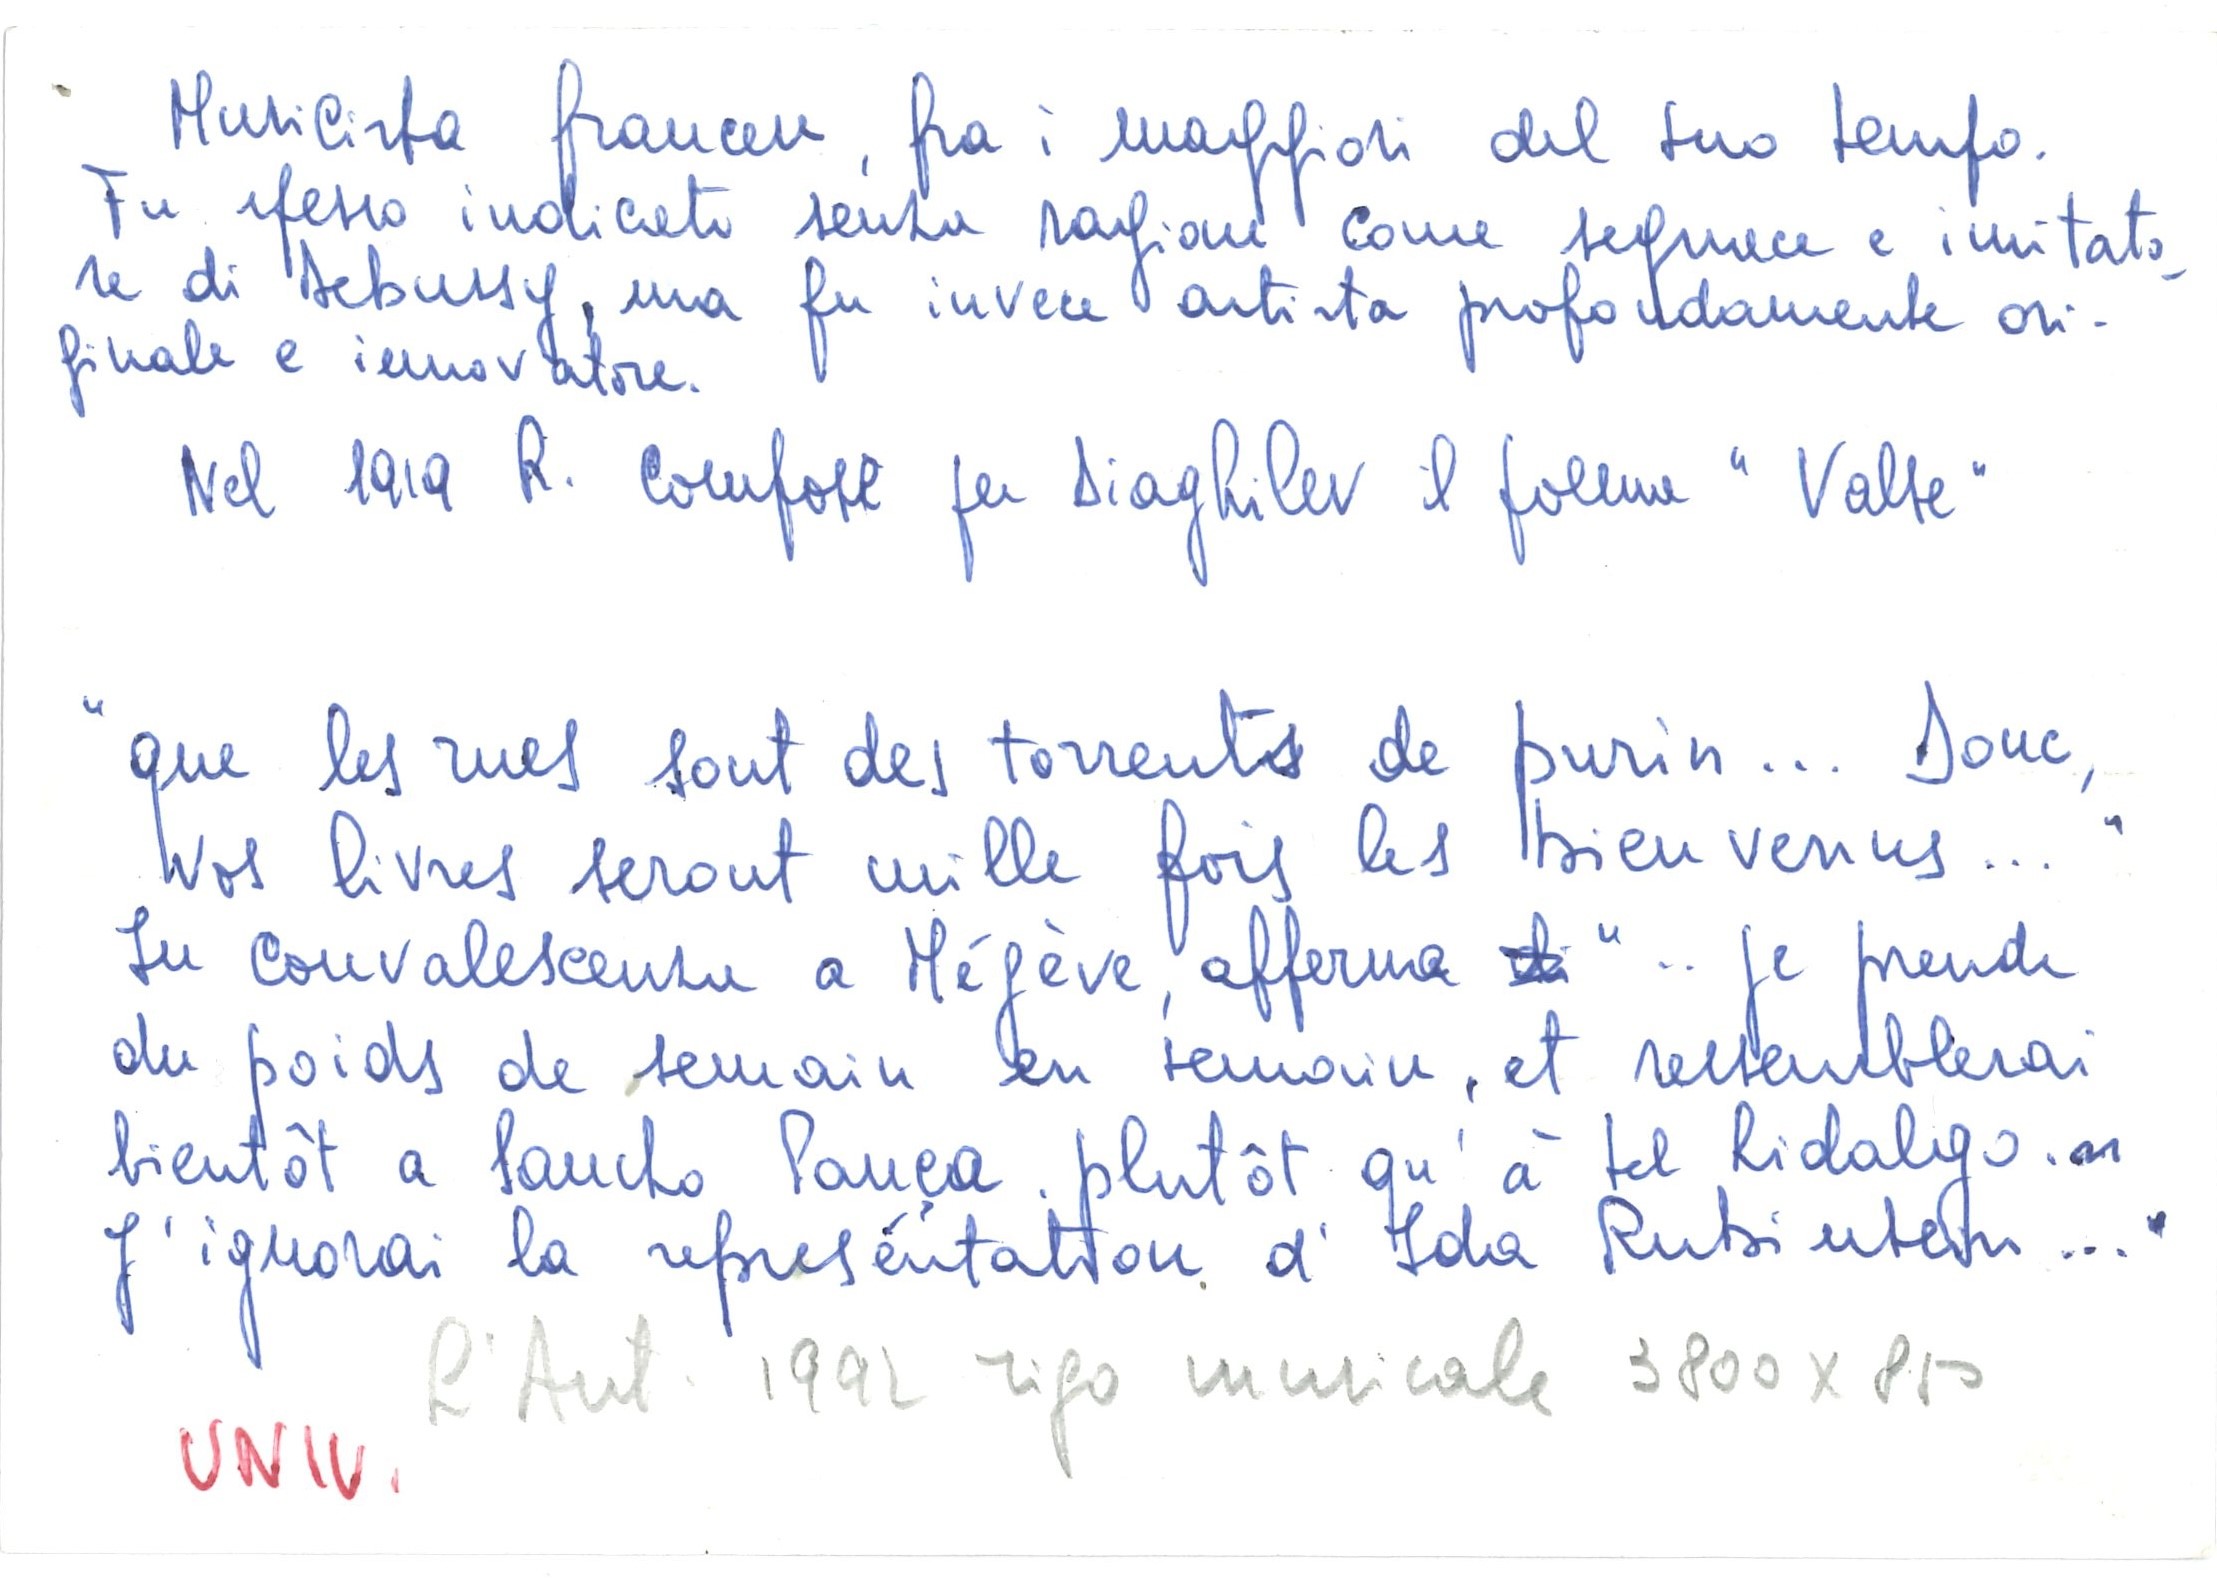 Musicista francese, fra i maggiori del suo tempo.
Fu spesso indicato senza ragione come seguace e imitato-
re di Debussy, ma fu invece artista profondamente ori-
ginale e innovatore.
Nel 1919 R. compose per Diaghilev il poema "Valse"
"que les rues sont des torrents de purin... Donc,
vos livres seront mille fois les bienvenus..."
In convalescenza a Mégève, afferma ".. je prende
du poids de semain en semain, et ressemblerai
bientôt a Sancho Pança plutôt qu'à tel hidalgo...
J'ignorai la representation d'Ida Rubsinstein..."
L'Aut. 1992 rigo musicale 3800 x 850
UNIV.